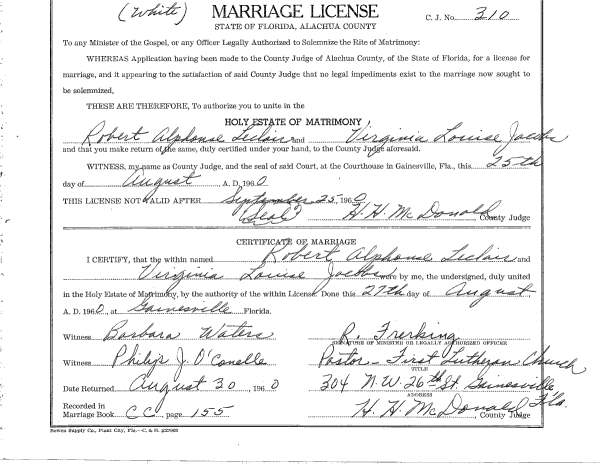 (White) MARRIAGE LICENSE C. J. No. 310
STATE OF FLORIDA, ALACHUA COUNTY
To any Minister of the Gospel, or any Officer Legally Authorized to Solemnize the Rite of Matrimony:
WHEREAS Application having been made to the County Judge of Alachua County, of the State of Florida, for a license for
marriage, and it appearing to the satisfaction of said County Judge that no legal impediments exist to the marriage now sought to
be solemnized,
THESE ARE THEREFORE, To authorize you to unite in the
HOLY ESTATE OF MATRIMONY
Robert Alphonse Leclair and Virginia Louise Jacobs
and that you make return of the same, duly certified under your hand, to the County Judge aforesaid.
WITNESS, my name as County Judge, and the seal of said Court, at the Courthouse in Gainesville, Fla., this 25th
day of August A. D. 1960
THIS LICENSE NOT VALID AFTER September 25, 1960
(Seal) H. H. McDonald County Judge
CERTIFICATE OF MARRIAGE
I CERTIFY, that the within named Robert Alphonse Leclair and
Virginia Louise Jacobs were by me, the undersigned, duly united
in the Holy Estate of Matrimony, by the authority of the within License. Done this 27th day of August,
A. D. 1960, at Gainesville Florida.
Witness Barbara Waters R. Frerking
SIGNATURE OF MINISTER OR LEGALLY AUTHORIZED OFFICER
Witness Philip J. O'Conelle Pastor - First Lutheran Church
TITLE
Date Returned August 30 1960 304 N.W. 26th St. Gainesville Fla.
ADDRESS
Recorded in
Marriage Book CC page 155 H. H. McDonald County Judge
Rowen Supply Co., Plant City, Fla.—C. & H. #27085